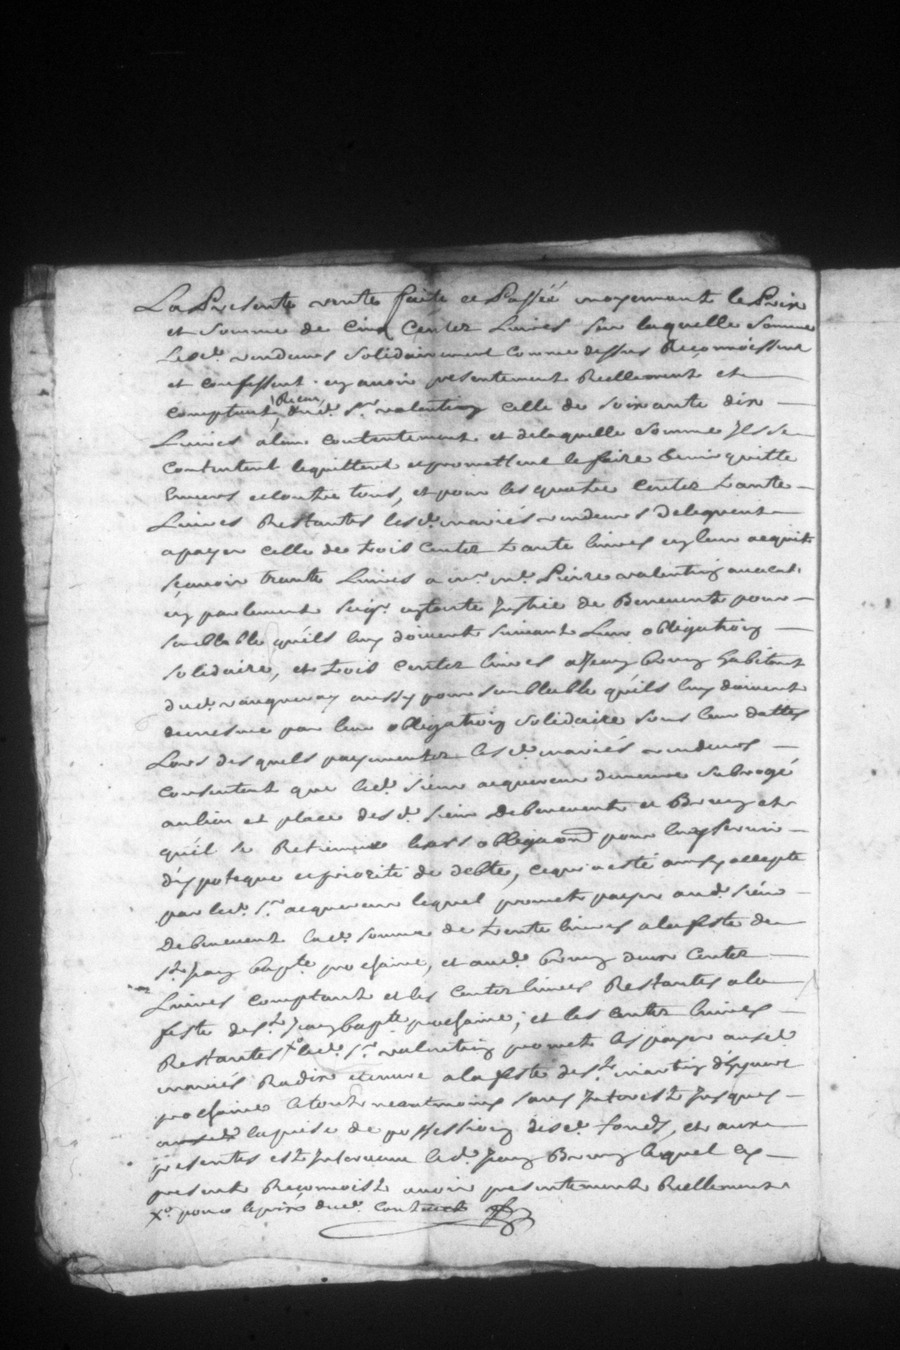 La Presente vente faite et Passée moyennant le Prix
et somme de Cinq Centez Livres sur laquelle somme
Lesd. vendeurs solidairement comme dessus Reconnoissent
et confessent en avoir presentement Reellement et
comptent Receu dud. Sr. valentin celle de soixante dix
Livres a leur contentement et de laquelle somme Ils se
Contentent le quittent et promettent le faire tenir quitte
Envers et contre tous, et pour les quatre Centez trante
Livres Restantes lesd. mariés vendeurs deleguent
a payer celle de trois Centez trante livres en leur acquit
sçavoir trante Livres a mr. me. Pierre valentin avocat
en parlement seigr. en toute Justice de Benevent pour
semblable qu'ils luy doivent suivant Leur obligation
solidaire, et trois Centez livres a Jean brun habitant
dud. aussy pour semblable qu'ils luy doivent
de mesme par leur obligation solidaire sous leur dattes
Lors des quels payementz lesd. mariés vendeurs
Consentent que led. sieur acquereur demeure subrogé
au lieu et place desd. sieur de benevent et Brun et
qu'il se Retienne lesd. obligaons pour luy servir
d'ypoteque et priorité de debte, ce qui a esté aussy accepté
par led. sr. acquereur lequel promet payer aud. sieur
de benevent lad. somme de trente livres a la feste de
st. Jean bapte. prochaine, et aud. brun deux Centez
Livres comptant et les Centez livres Restantes a la
feste de st. Jean bapte prochaine; et les Centez livres
Restantes x led. sr. valentin promet les payer ausd.
mariés a la feste de st. martin d'hyver
prochaine le tout neantmoins sans Interest Jusques
la prise de possession desd. fonds, et aux
presentes est Intervenu led. Jean Brun lequel en
present Reconnoist avoir presentement Reellement
x pour le prix du contract